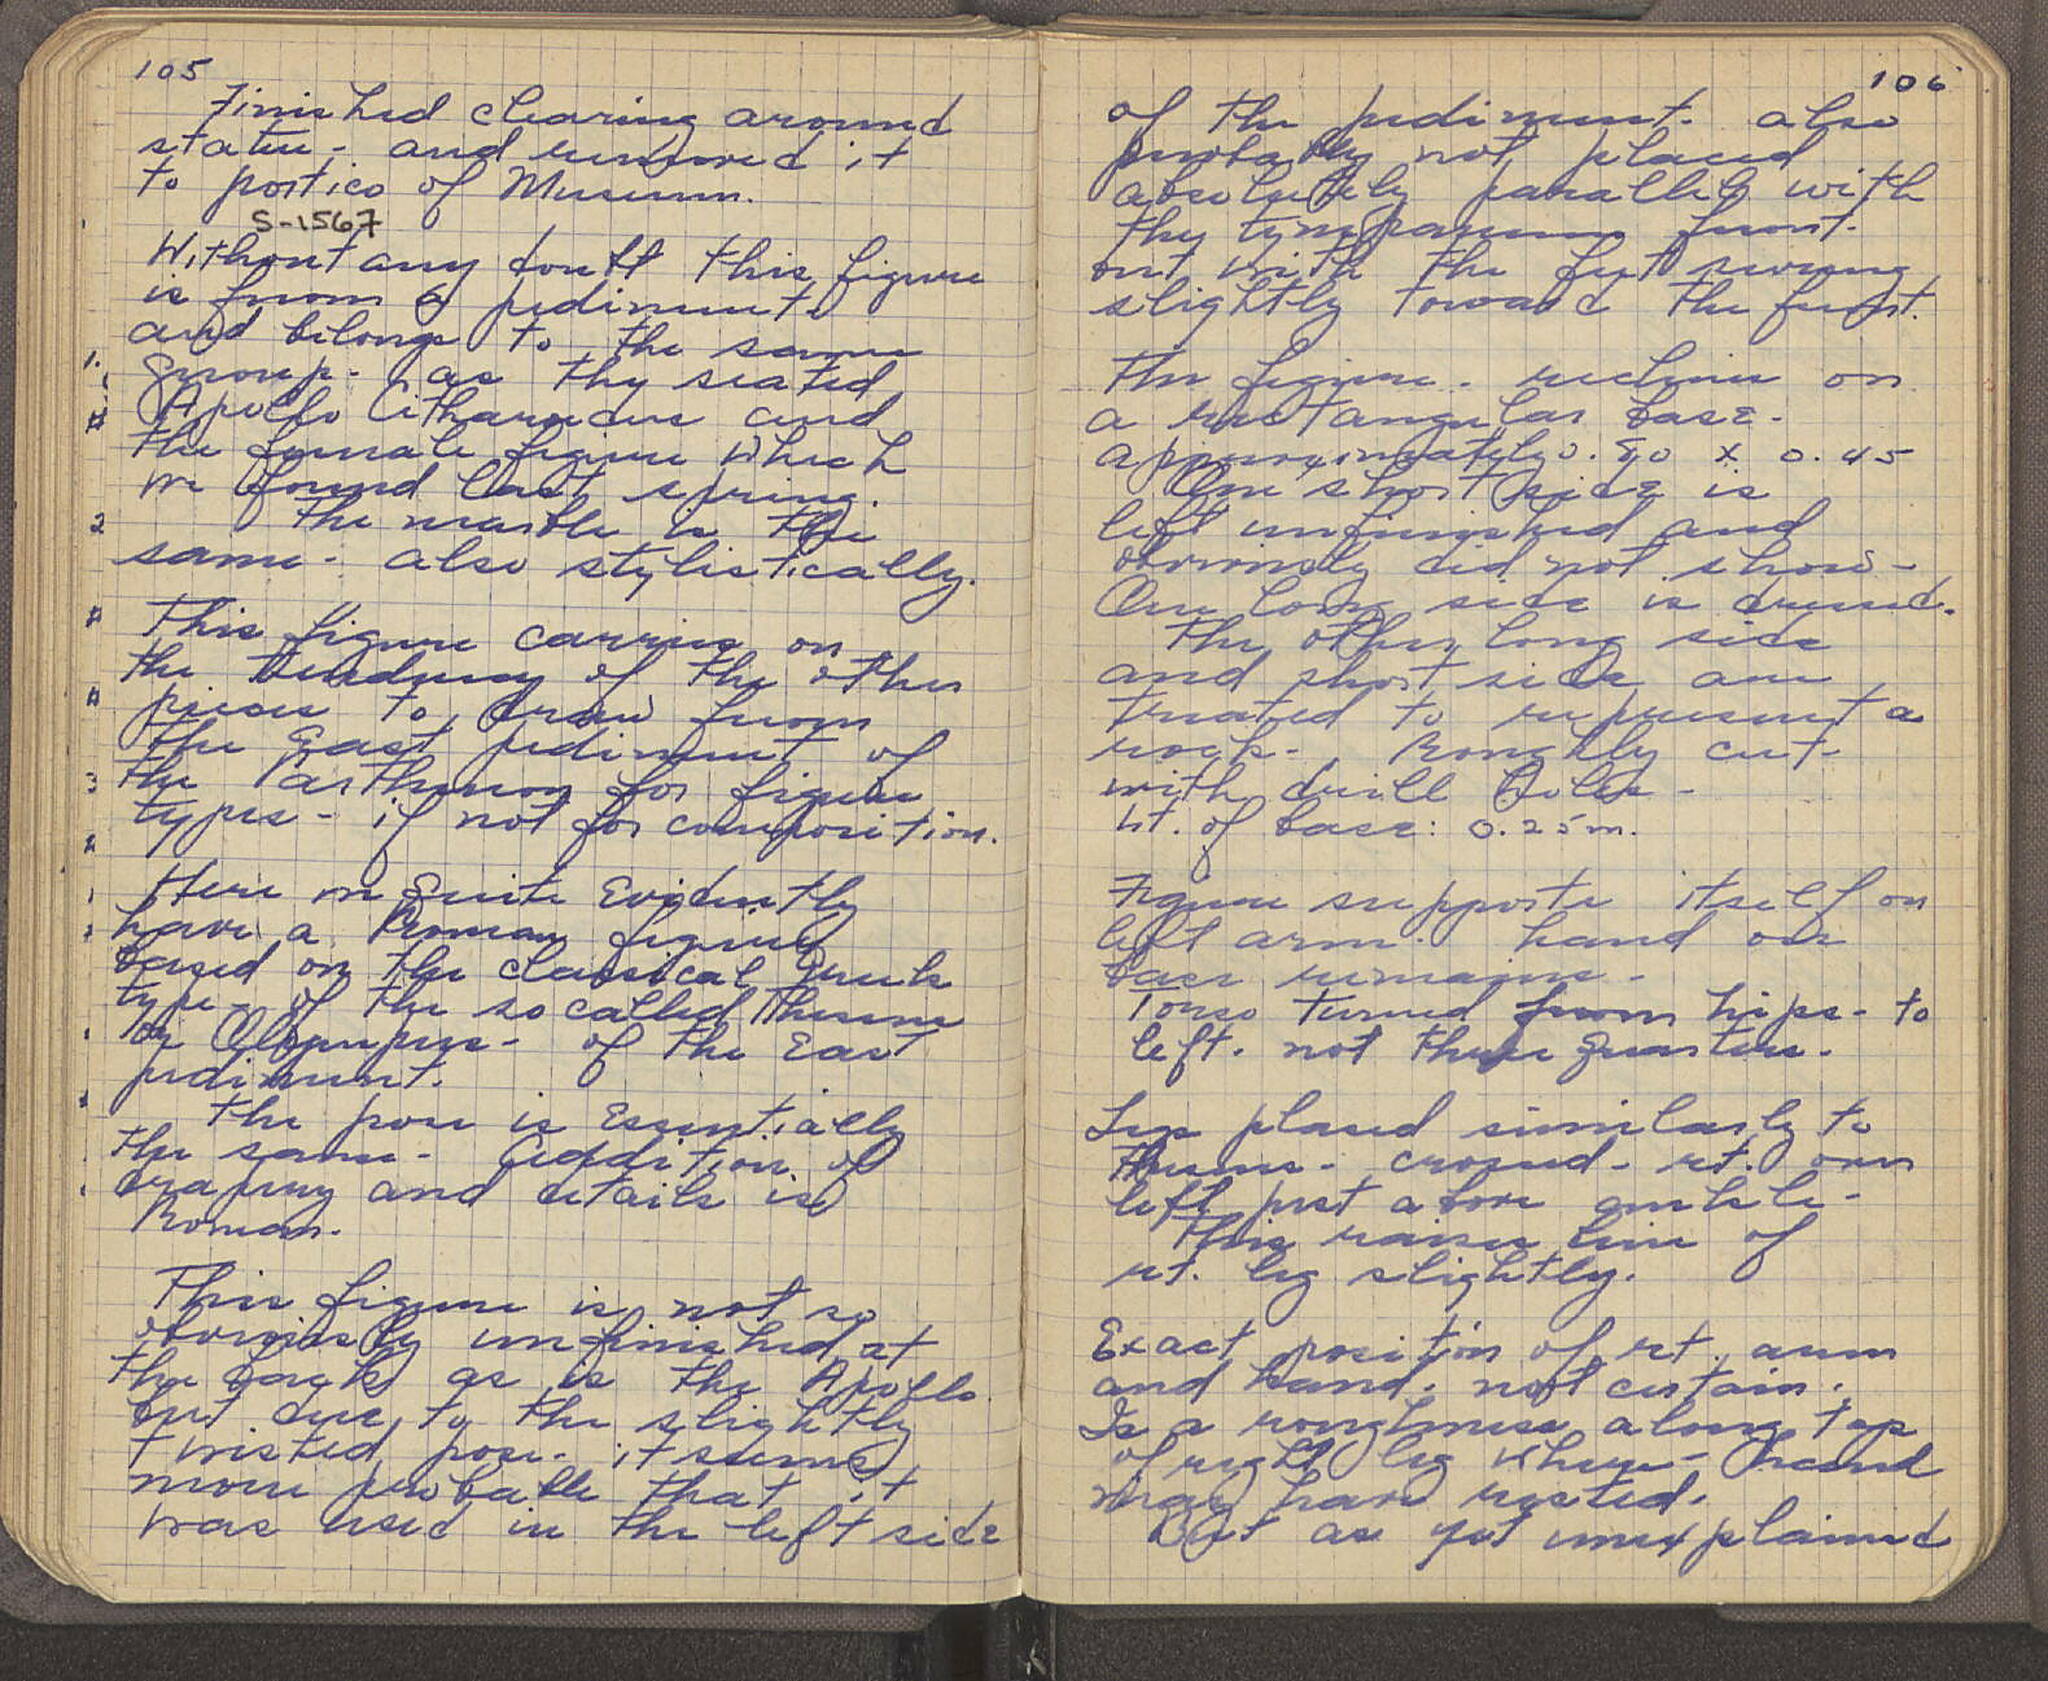 105
Finished clearing around
statue - and removed it
to portico of Museum.
S-1567
Without any doubt this figure
is from a pediment
and belongs to the same
group - as the seated
Apollo Citharoedus and
the female figure which
we found last spring.
The marble is the
same - also stylistically.
This figure carries on
the tendency of the other
pieces to draw from
the East pediment of
the Parthenon for figure
types - if not for composition.
Here we quite evidently
have a Roman figure
based on the classical Greek
type - of the so called Theseus
or Olympus - of the East
pediment.
The pose is essentially
the same - addition of
drapery and details is
Roman.
This figure is not so
obviously unfinished at
the back as is the Apollo.
but due to the slightly
twisted pose - it seems
more probable that it
was used in the left side
106
of the pediment - also
probably not placed
absolutely parallel with
the tympanum front -
but with the feet swung
slightly toward the front.
The figure - reclines on
a rectangular base -
approximately 0.80 x 0.45
One short side is
left unfinished and
obviously did not show -
One long side is dressed.
The other long side
and short side are
treated to represent a
rock - roughly cut
with drill holes -
Ht. of base: 0.25 m.
Figure supports itself on
left arm. hand on
base remains -
Torso turned from hips - to
left. not three quarters.
Legs placed similarly to
Theseus - crossed - rt. over
left just above ankle -
This raises line of
rt. leg slightly.
Exact position of rt. arm
and hand. not certain.
Is a roughness along top
of right leg where - hand
may have rested.
But as yet unexplained